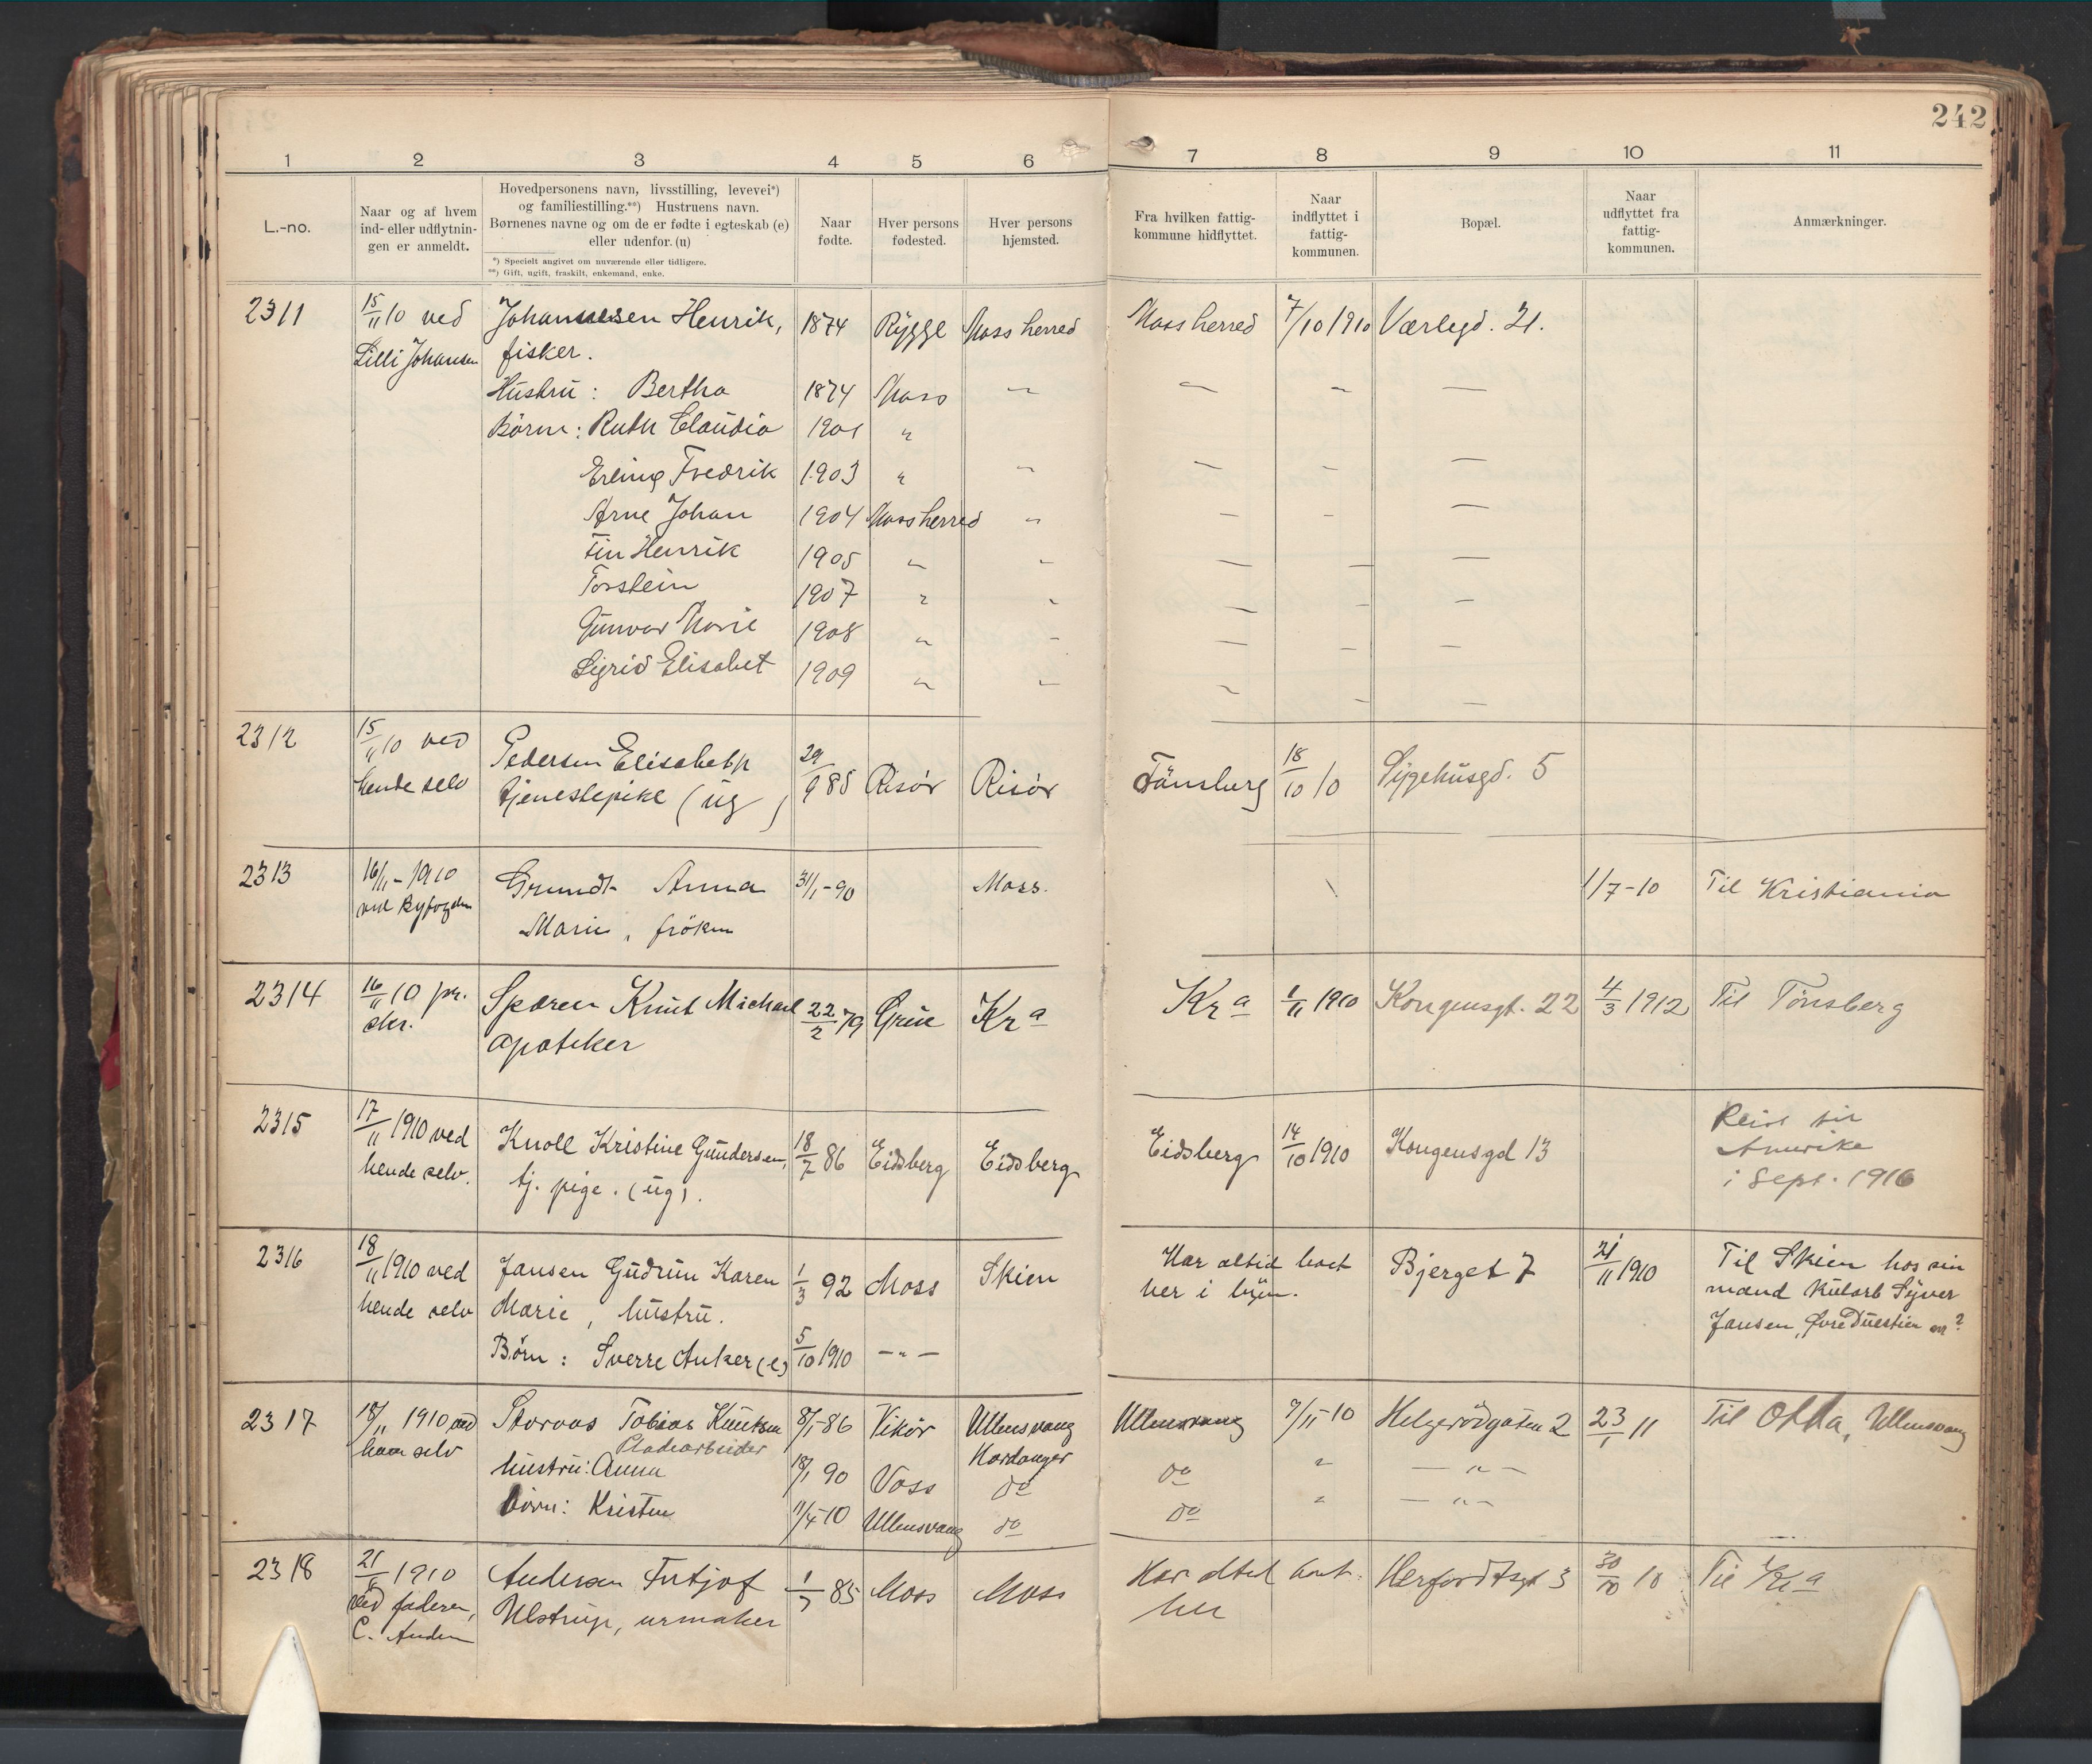 242
1 2 3 4 5 6 7 8 9 10 11
L.-no.
Naar og af hvem
ind- eller udflytnin-
gen er anmeldt.
Hovedpersonens navn, livsstilling, levevei*)
og familiestilling.**) Hustruens navn.
Børnenes navne og om de er fødte i egteskab (e)
eller udenfor. (u)
*) Specielt angivet om nuværende eller tidligere.
**) Gift, ugift, fraskilt, enkemand, enke.
Naar
fødte.
Hver persons
fødested.
Hver persons
hjemsted.
Fra hvilken fattig-
kommune hidflyttet.
Naar
indflyttet i
fattig-
kommunen.
Bopæl.
Naar
udflyttet fra
fattig-
kommunen.
Anmærkninger.
2311 15/11 10 ved Johannesen Henrik, 1874 Rygge Moss herred Moss herred 7/10 1910 Værlegd. 21.
Lilli Johansen fisker.
Hustru: Bertha 1874 Moss " — — —
Børn: Ruth Claudia 1901 "
Erling Fredrik 1903 " " — — —
Arne Johan 1904 Moss herred " — — —
Fin Henrik 1905 " " — — —
Torstein 1907 " " — — —
Gunvor Marie 1908 " " — — —
Sigrid Elisabet 1909 " " — — —
2312 15/11 10 ved Pedersen Elisabeth 29/9 85 Risör Risör Tönsberg 18/10 10 Sygehusgd. 5
hende selv tjenestepike (ug)
2313 16/11-1910 Grundt Anna 31/1-90 Moss. 1/7-10 Til Kristiania
ved Byfogden Marie, fröken
2314 16/11 10 pr. Sparen Knut Michael 22/2 79 Grue Kra Kra 1/11 1910 Kongensgt. 22 4/3 1912 Til Tönsberg
skr. apoteker
2315 17/11 1910 ved Knoll Kristine Gundersen, 18/7 86 Eidsberg Eidsberg Eidsberg 14/10 1910 Kongensgd 13 Reist til
hende selv. tj. pige. (ug). Amerika
i Sept. 1916
2316 18/11 1910 ved Jansen Gudrun Karen 1/3 92 Moss Skien Har altid boet Bjerget 7 21/11 1910 Til Skien hos sin
hende selv Marie, hustru. her i byen. mand Kularb Syver
Jansen, Øvre
Børn: Sverre Anker (e) 5/10 1910 — " —
2317 18/11 1910 ved Storaas Tobias Knutsen 8/1-86 Vikör Ullensvang Ullensvang 9/11-10 Helgerödgaten 2 23/1 11 Til Odda, Ullensvang
ham selv Hardanger
hustru: Anna 18/1 90 Voss do do " — " —
børn: Kristen 11/4-10 Ullensvang do do " — " —
2318 21/11 1910 Andersen Fritjof 1/7 85 Moss Moss Har altid boet. Herfordtsgt 3 30/10 10 Til Kra
ved faderen, Ulstrup, urmaker her
C. Andersen